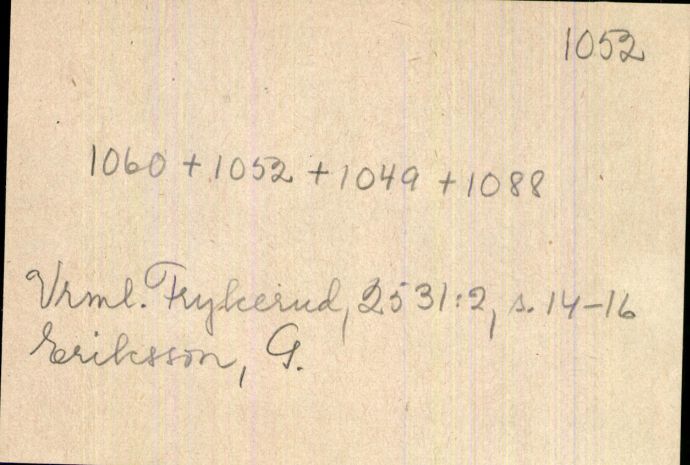 1052
1060 + 1052 + 1049 + 1088
Vrml. Frykerud, 2531:2, s. 14-16
Eriksson, G.